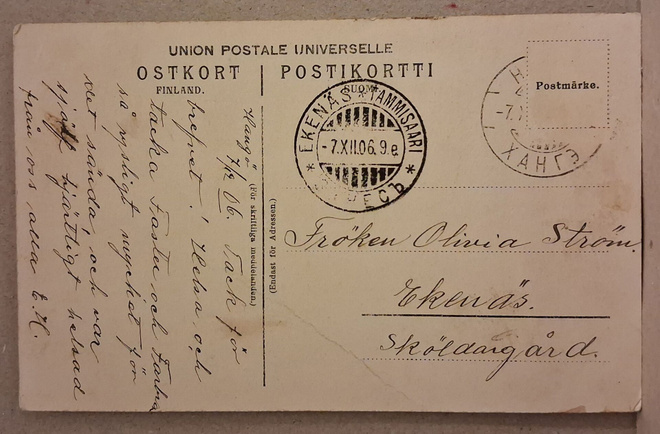 UNION POSTALE UNIVERSELLE
POSTKORT
POSTIKORTTI
FINLAND.
SUOMI
Postmärke.
EKENÄS * TAMMISAARI
-7.XII.06.9e
ХАНГЭ
(För skriftliga meddelanden.)
(Endast för Adressen.)
Hangö
7/12 06. Tack för
brefvet! Helsa och
tacka Faster och Farbror
så rysligt mycket för
det sända, och var
själf hjärtligt helsad
från oss alla E.H.
Fröken Olivia Ström.
Ekenäs.
Sköldargård.